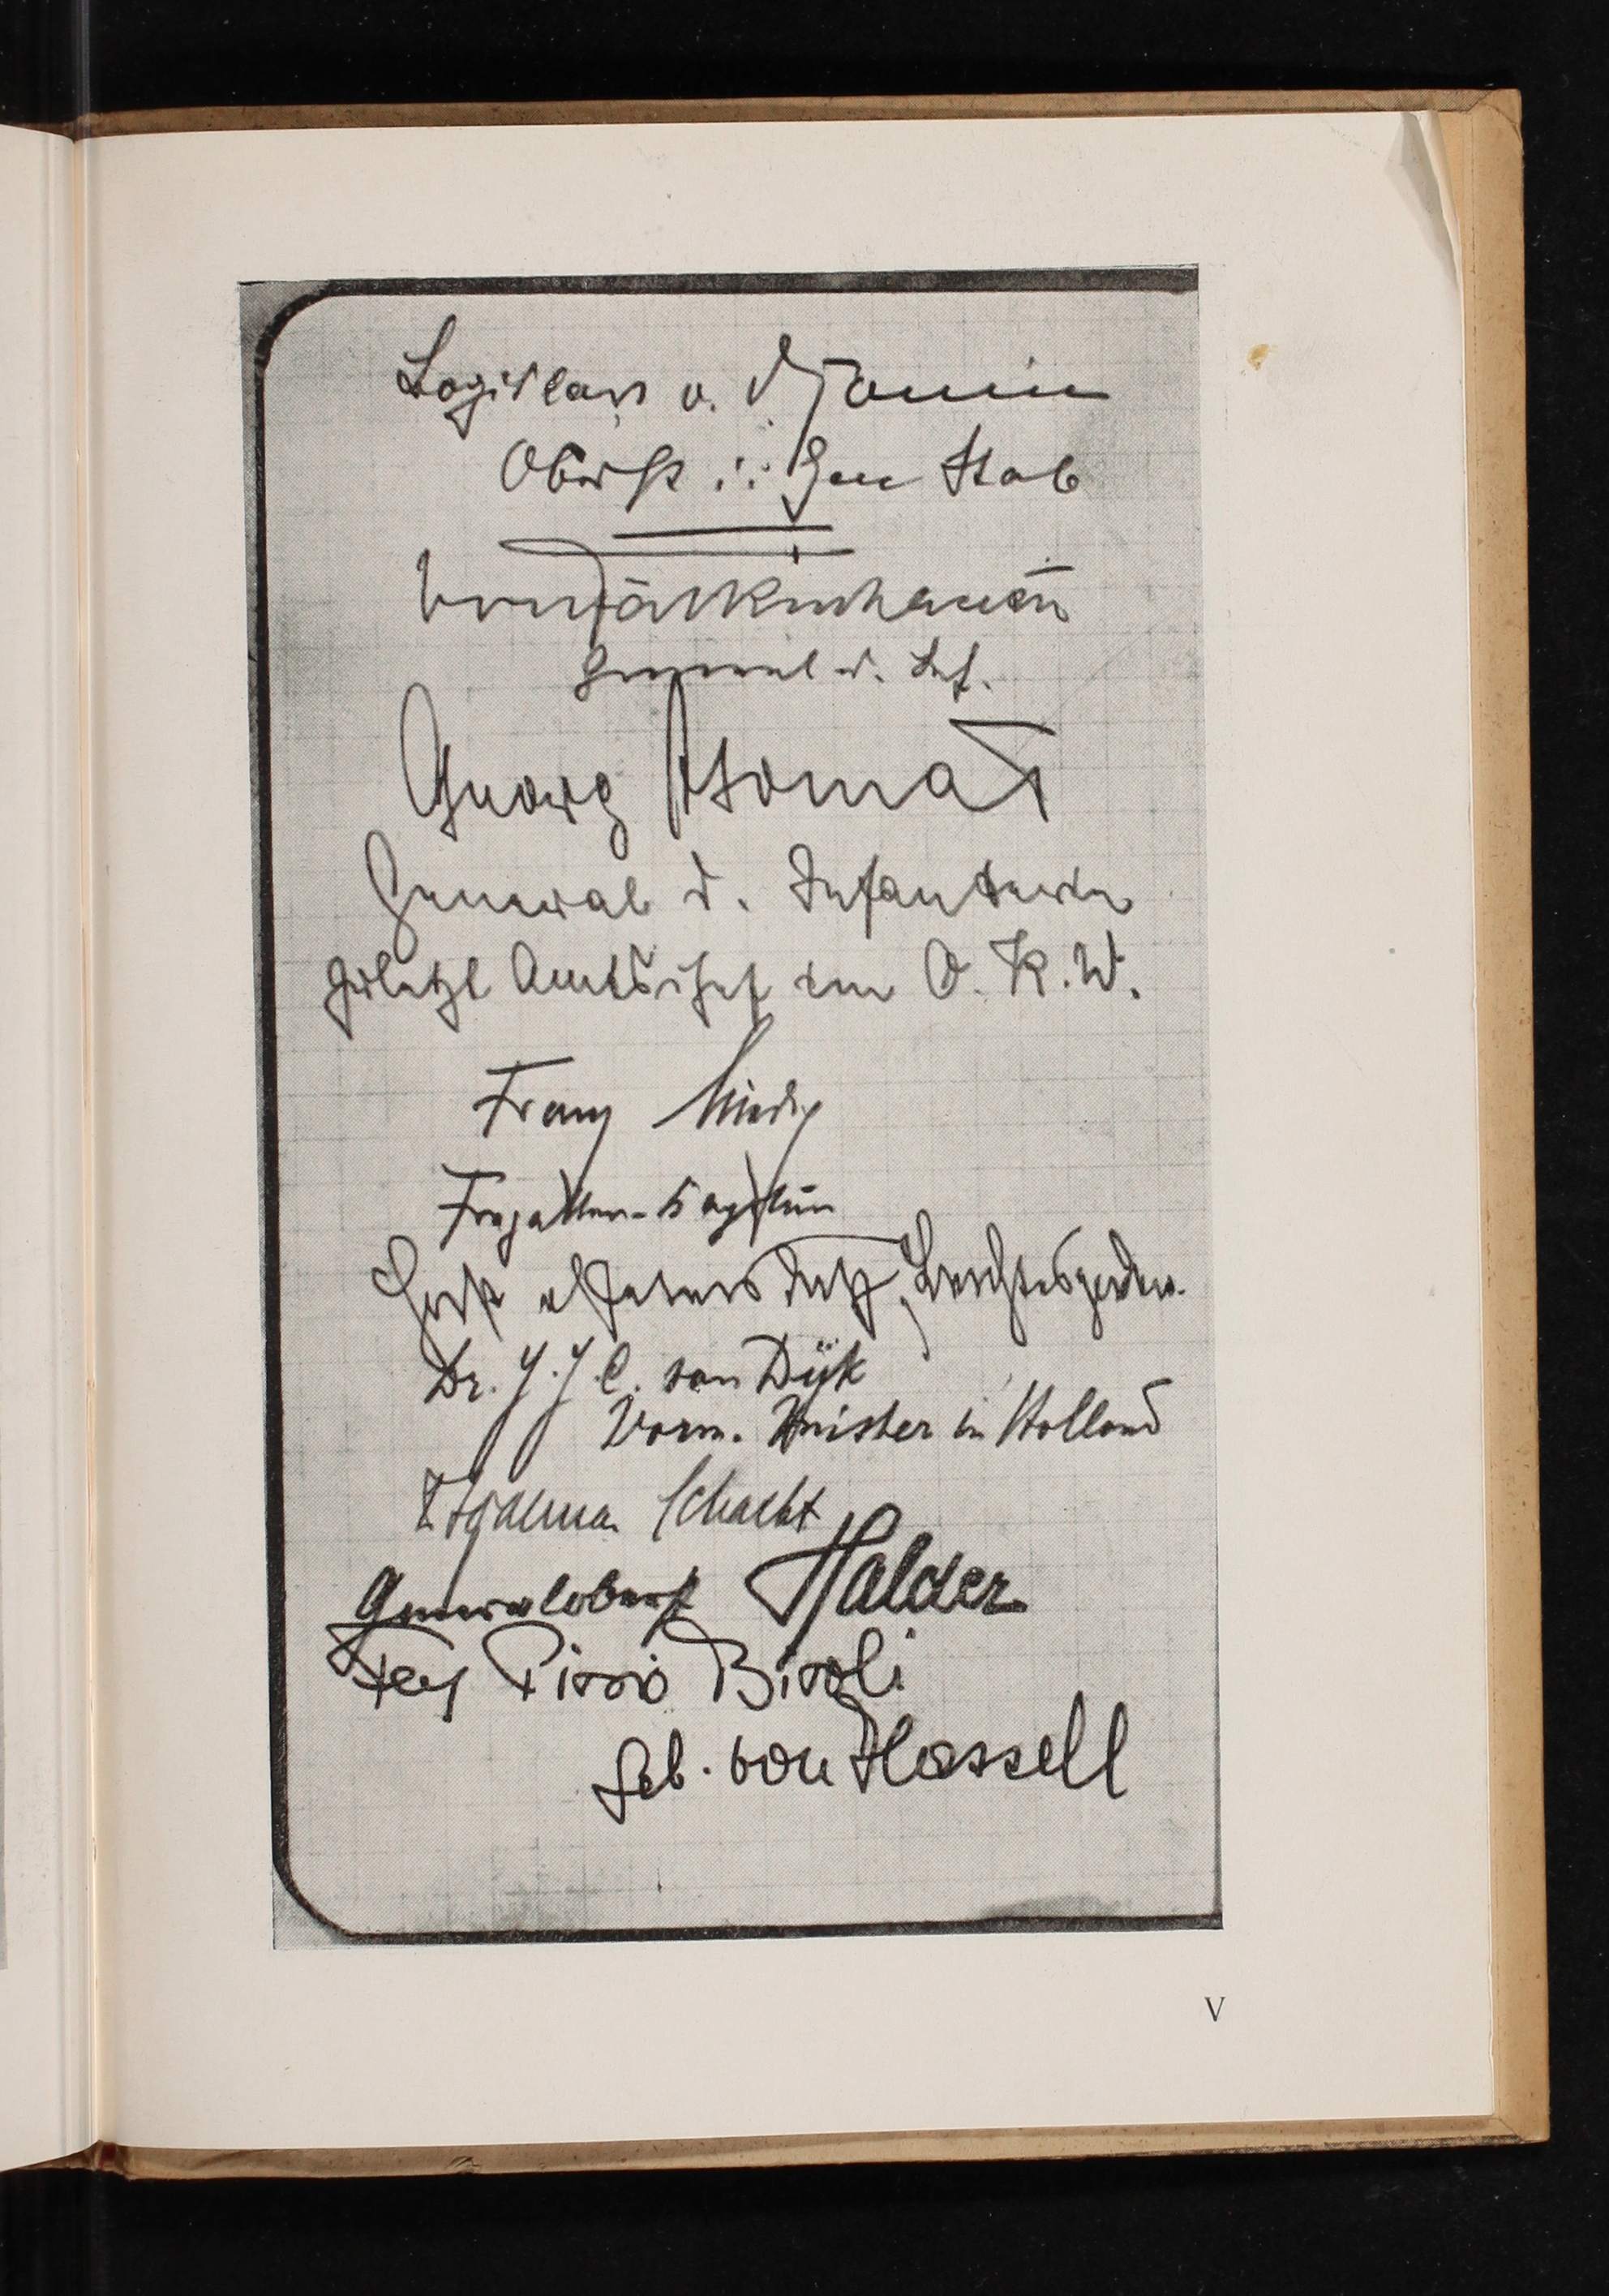 Bogislaw v. Bonin
Oberst i. Gen Stab
von Falkenhausen
General d. Inf.
Georg Thomas
General d. Infanterie
zuletzt Amtschef im O.K.W.
Franz Liedig
Fregatten-Kapitän
Horst Petersdorff,
Dr. J.J.C. van Dijk
Vorm. Minister in Holland
Hjalmar Schacht
Generaloberst Halder
Fey Pirzio Biroli
Geb. von Hassell
V